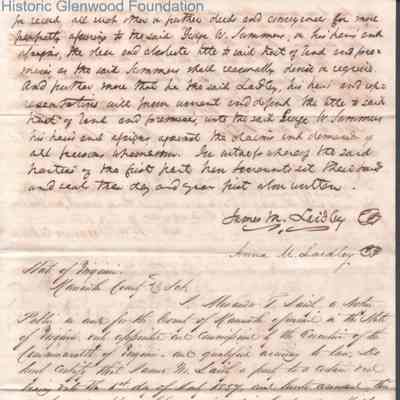 Historic Glenwood Foundation
or record all such other or further deeds and conveyance for more
perfectly assuring to the said George W. Summers, or his heirs and
assigns, the clear and absolute title to said tract of land and pre-
mises as the said Summers shall reasonably devise or require.
And further more that he the said Laidley, his heirs and rep-
resentatives will forever warrant and defend the title to said
tract of land and premises, unto the said George W. Summers
his heirs and assigns against the claims and demands of
all persons whomsoever. In witness whereof the said
parties of the first part have hereunto set their hands
and seals the day and year first above written.
James M. Laidley
Anna M. Laidley
State of Virginia
Kanawha County Sct.
I, a Notary
Public in and for the County of Kanawha in the State
of Virginia, and appointed Commissioner by the Executive of the
Commonwealth of Virginia and qualified according to law, do
that James M. Laidley a party to a certain deed
bearing date the day of 1857 and hereto annexed